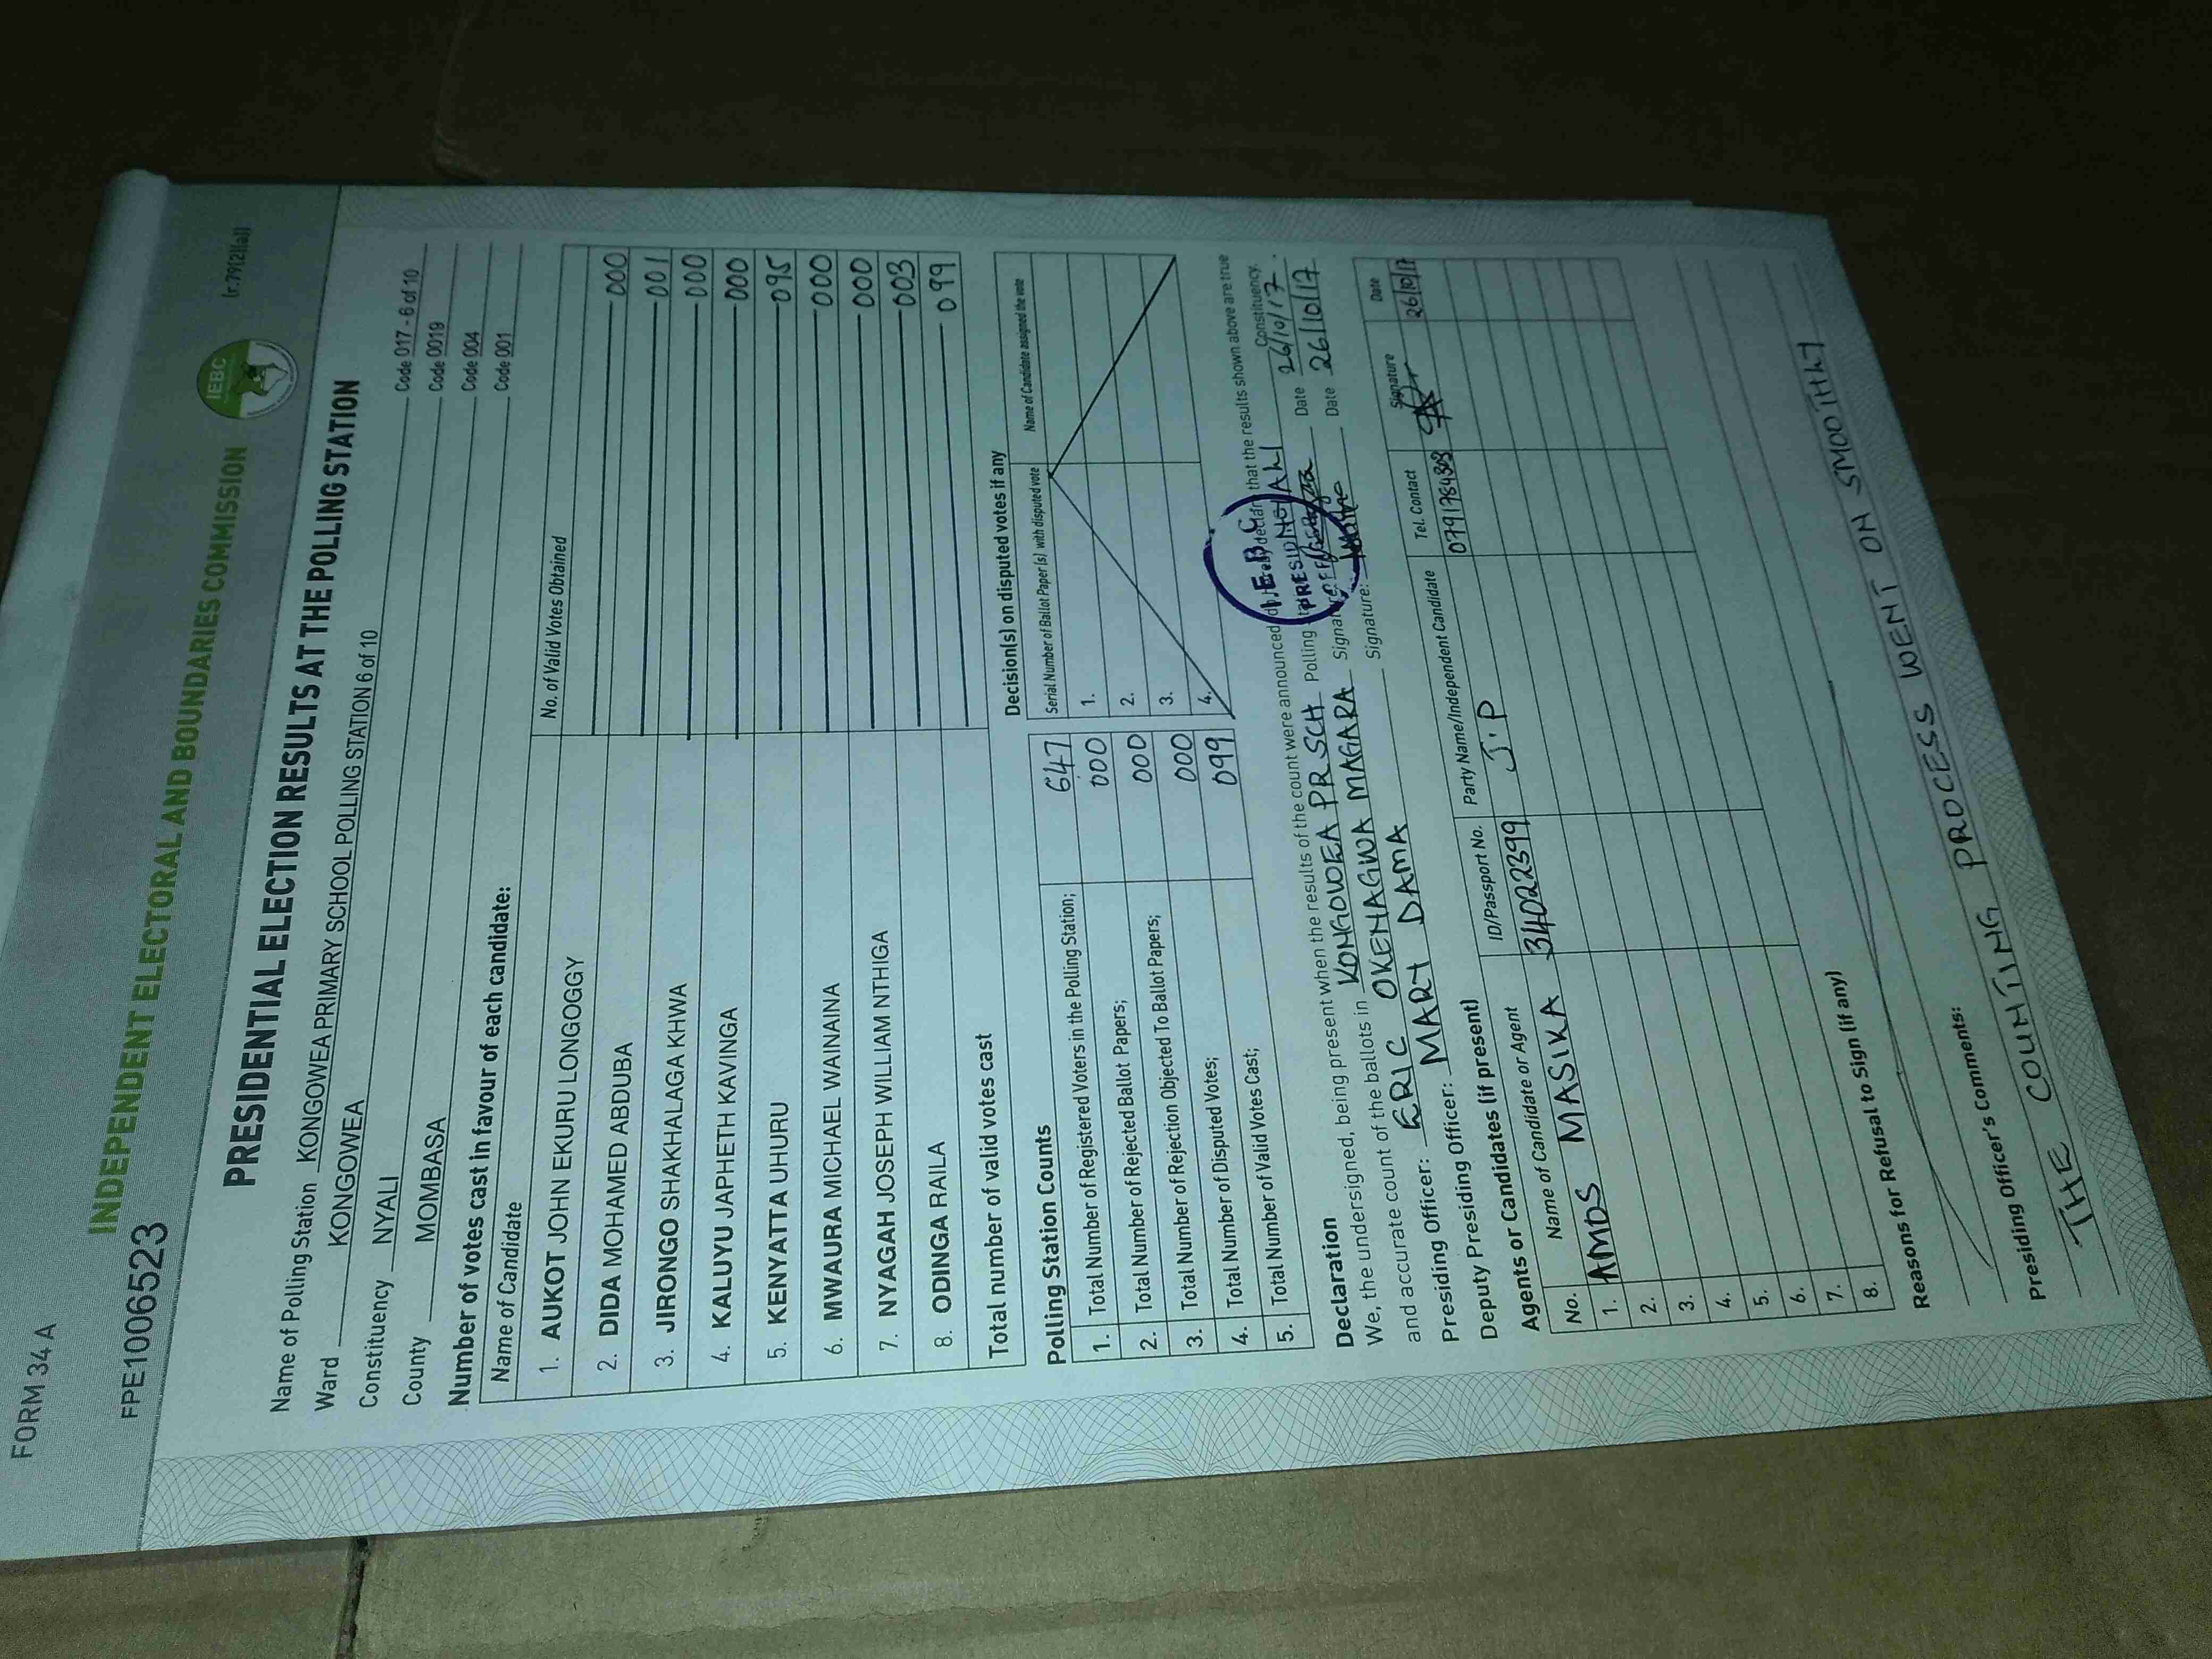 FORM 34 A
FPE1006523
INDEPENDENT ELECTORAL AND BOUNDARIES COMMISSION
IEBC
(r.79(2)(a))
PRESIDENTIAL ELECTION RESULTS AT THE POLLING STATION
Name of Polling Station KONGOWEA PRIMARY SCHOOL POLLING STATION 6 of 10 Code 017 - 6 of 10
Ward KONGOWEA Code 0019
Constituency NYALI Code 004
County MOMBASA Code 001
Number of votes cast in favour of each candidate:
Name of Candidate No. of Valid Votes Obtained
1. AUKOT JOHN EKURU LONGOGGY 000
2. DIDA MOHAMED ABDUBA 001
3. JIRONGO SHAKHALAGA KHWA 000
4. KALUYU JAPHETH KAVINGA 000
5. KENYATTA UHURU 095
6. MWAURA MICHAEL WAINAINA 000
7. NYAGAH JOSEPH WILLIAM NTHIGA 000
8. ODINGA RAILA 003
Total number of valid votes cast 099
Polling Station Counts
1. Total Number of Registered Voters in the Polling Station; 647
2. Total Number of Rejected Ballot Papers; 000
3. Total Number of Rejection Objected To Ballot Papers; 000
4. Total Number of Disputed Votes; 000
5. Total Number of Valid Votes Cast; 099
Decision(s) on disputed votes if any
Serial Number of Ballot Paper(s) with disputed vote Name of Candidate assigned the vote
1.
2.
3.
4.
Declaration
We, the undersigned, being present when the results of the count were announced, do declare that the results shown above are true
and accurate count of the ballots in KONGOWEA PR SCH Polling NYALI Constituency.
I.E.B.C
PRESIDING
OFFICER
Presiding Officer: ERIC OKENAGWA MAGARA Signature: Date 26/10/17.
Deputy Presiding (if present) MARY DAMA Signature: Date 26/10/17
Agents or Candidates
No. Name of Candidate or Agent ID/Passport No. Party Name/Independent Candidate Tel. Contact Signature Date
1. AMOS MASIKA 34022399 J.P 26/10/17
2.
3.
4.
5.
6.
7.
8.
Reasons for Refusal to Sign (if any)
Presiding Officer's Comments:
THE COUNTING PROCESS WENT ON SMOOTHLY